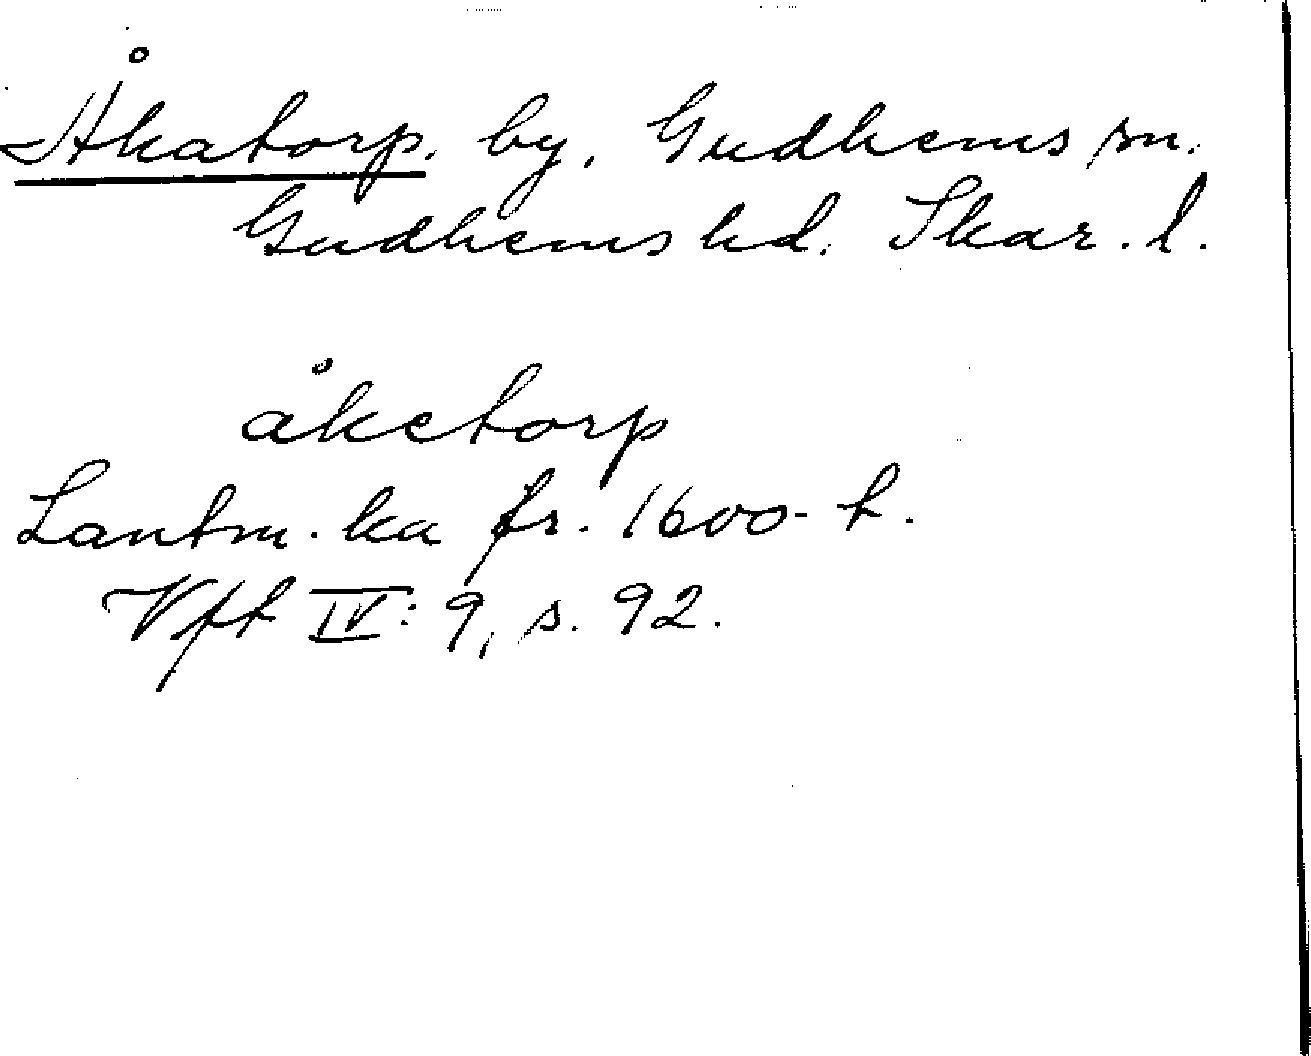 Åkatorp. by. Gudhems sn.
Gudhems hd. Skar. l.
åketorp
Lantm. ka fr. 1600-t.
Vft IV: 9, s. 92.